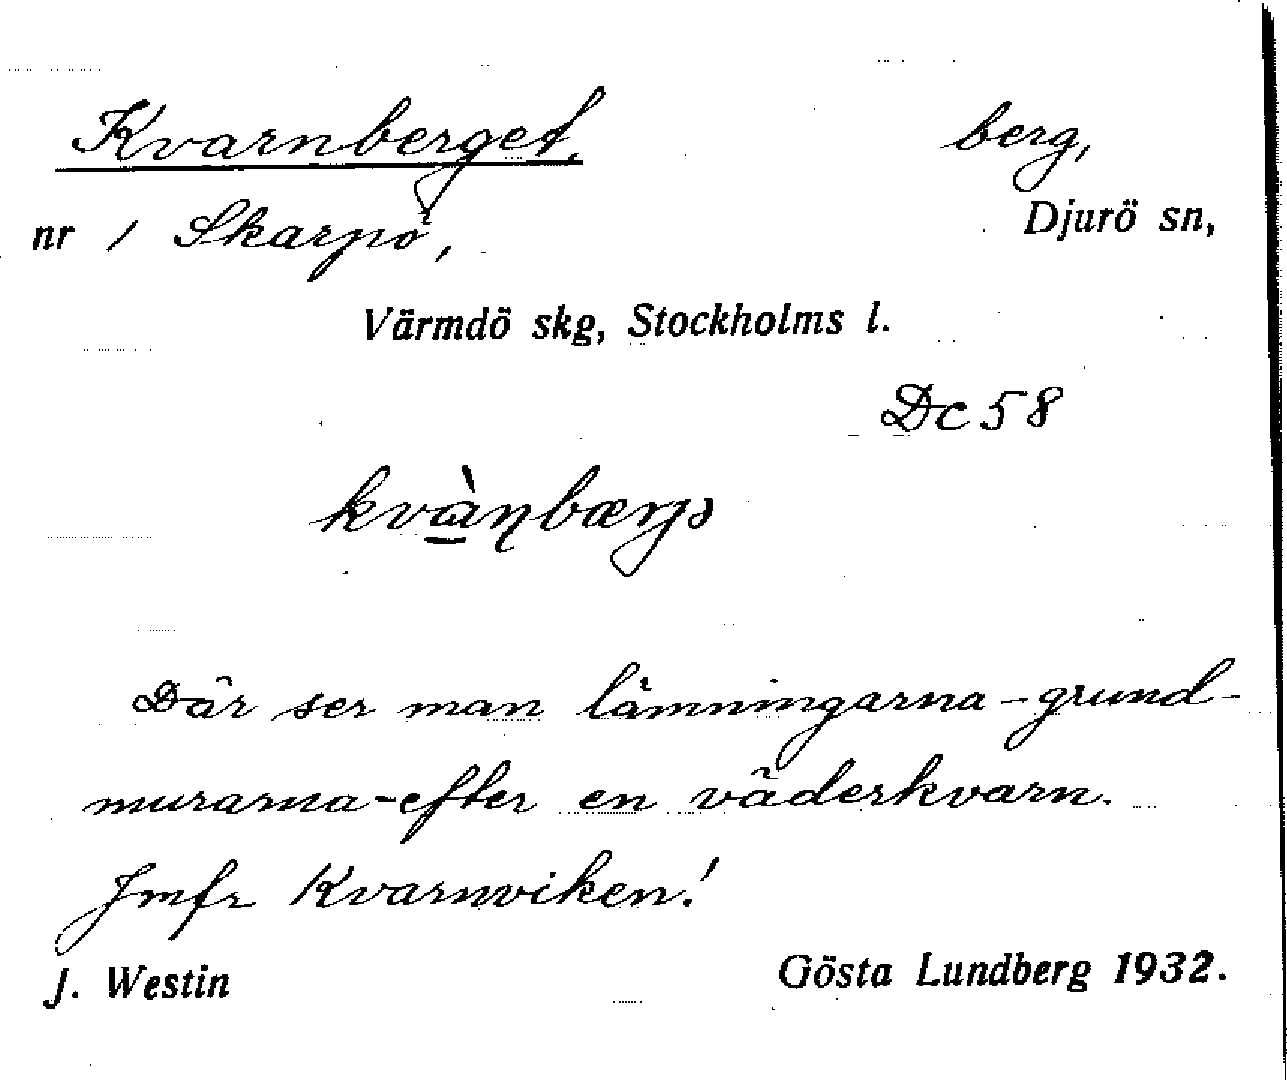 Kvarnberget, berg,
nr 1 Skarpö, Djurö sn,
Värmdö skg, Stockholms l.
Dc 58
Där ser man lämningarna - grund-
murarna - efter en väderkvarn.
Jmfr Kvarnviken!
J. Westin Gösta Lundberg 1932.